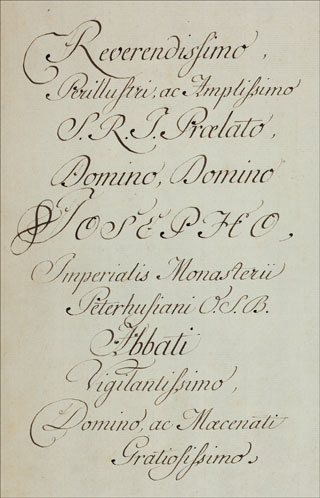 Reverendissimo,
Perillustri, ac Amplissimo
S. R. I. Prælato,
Domino, Domino
JOSEPHO,
Imperialis Monasterii
Peterhusiani O. S. B.
Abbati
Vigilantissimo,
Domino, ac Mæcenati
Gratiosissimo.